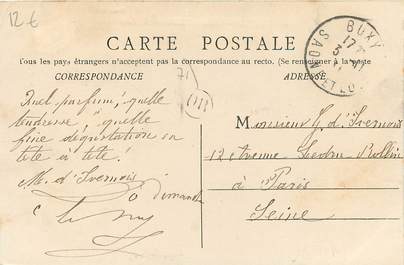 12 €
CARTE POSTALE
Tous les pays étrangers n'acceptent pas la correspondance au recto. (Se renseigner à la poste
CORRESPONDANCE
ADRESSE
71
BUXY
SAONE ET LO
Quel parfum, quelle
tendresse, quelle
fine dégustation en
tête à tête!
M. d'Ivernois
Dimanche
Monsieur G. d'Ivernois
12 Avenue Ledru-Rollin
à Paris
Seine